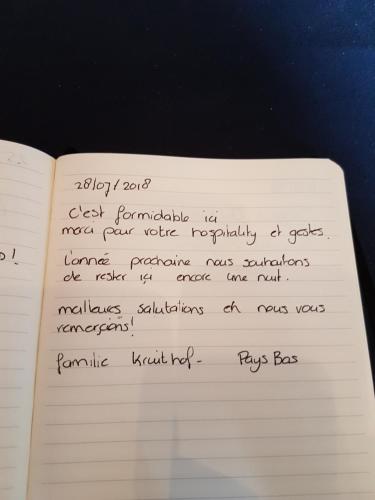 o!
28/07/2018
C'est formidable ici
merci pour votre hospitality et gestes.
L'année prochaine nous souhaitons
de rester içi encore une nuit.
meilleures salutations en nous vous
remerçions!
familie Kruithof - Pays Bas